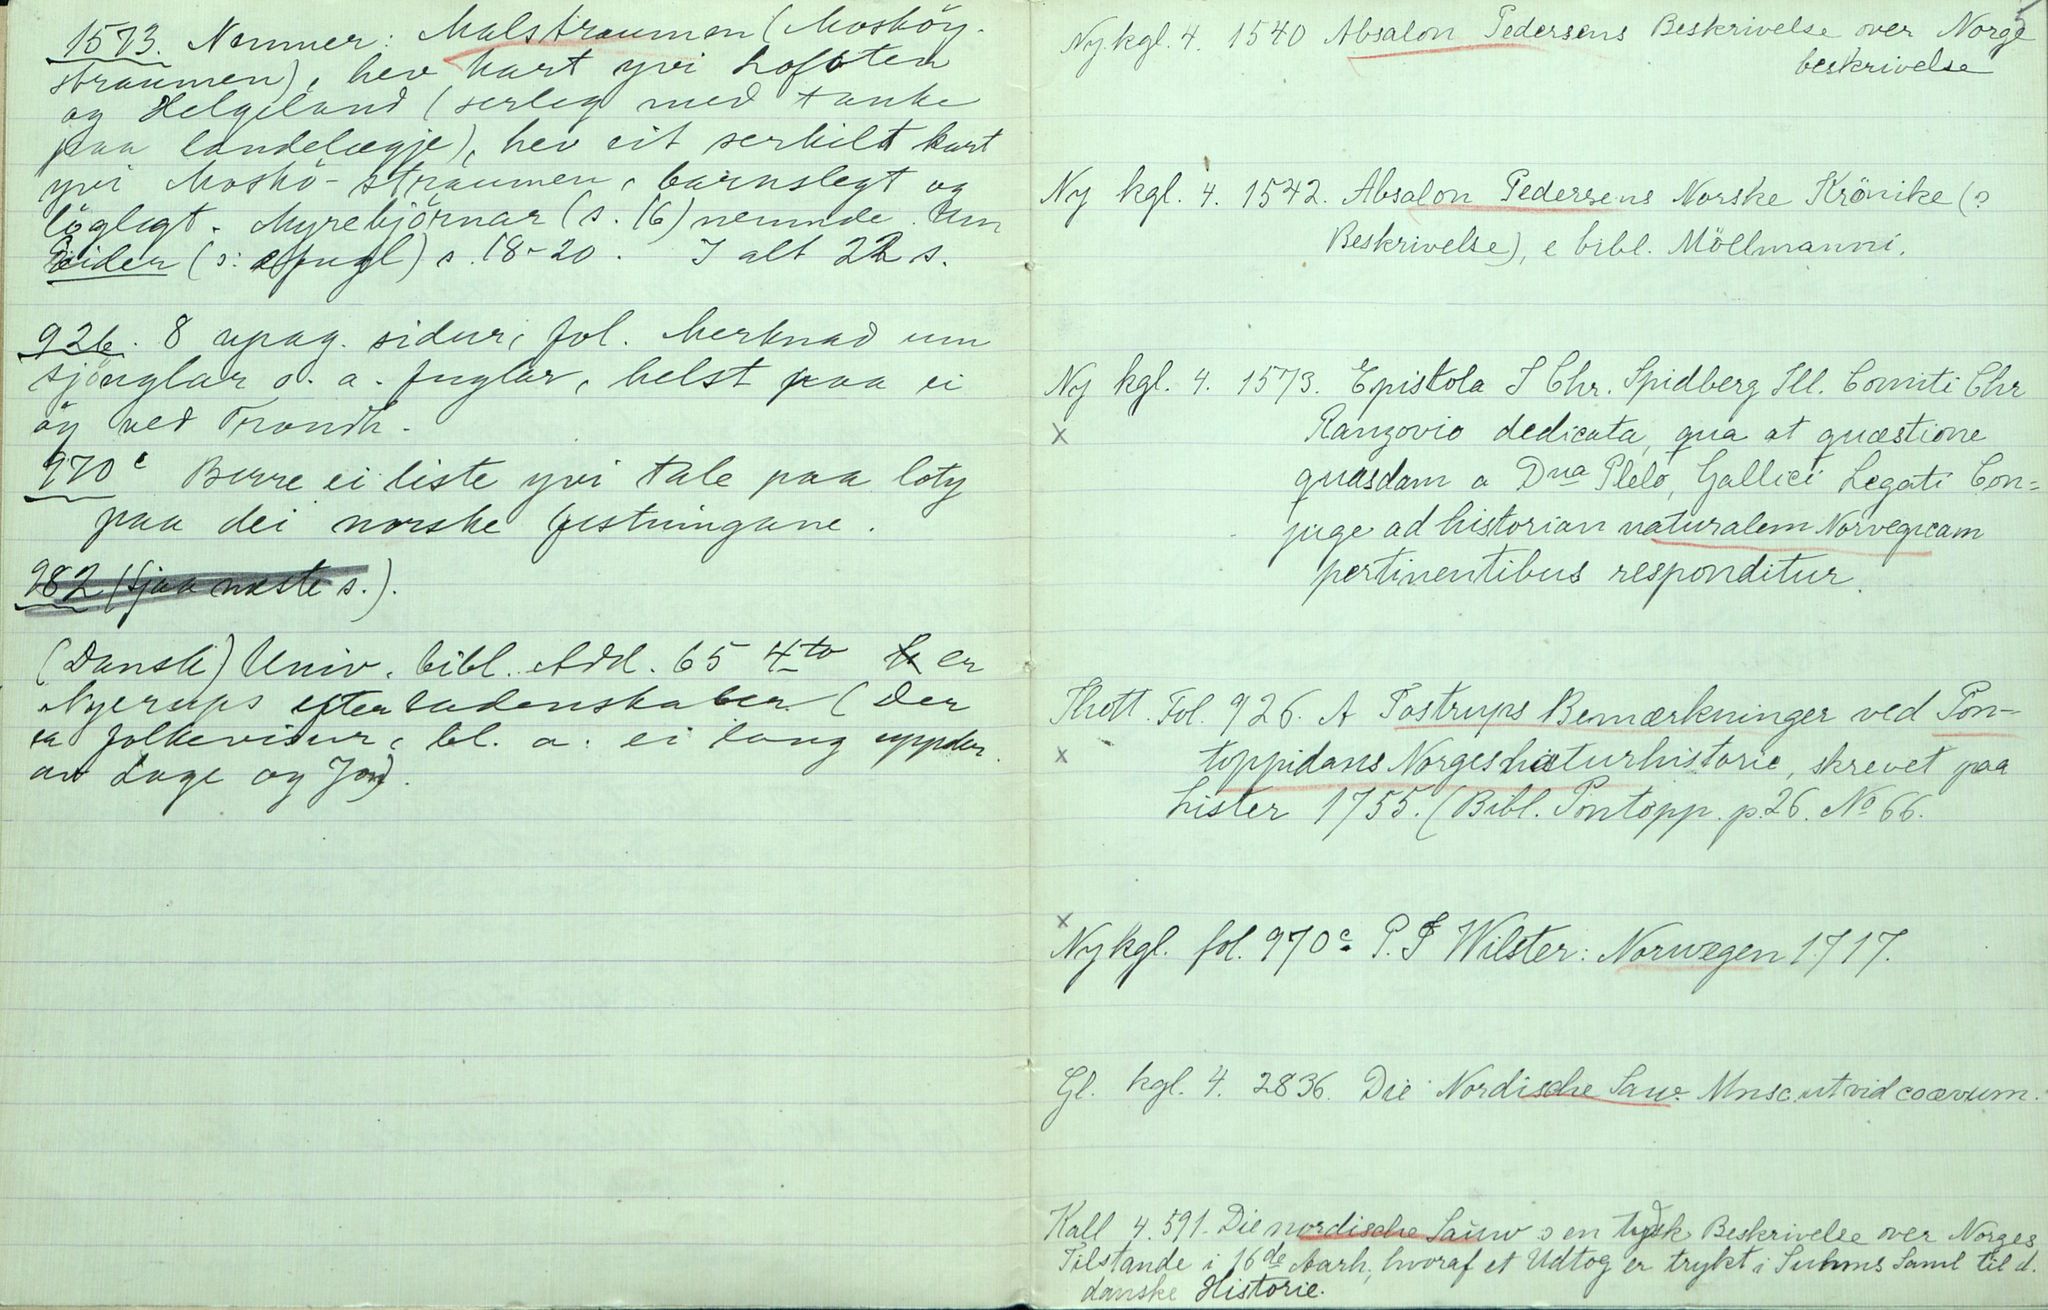 1573. Nemner: Malstraumen (Mosköy-
straumen), hev kart yvi Lofoten
og Helgeland (serleg med tanke
paa landelægje), hev eit serskilt kart
yvi Moskö-straumen, barnslegt og
löglegt. Myrebjörnar (s. 16) nemnde. Um
Eider (ɔ: fugl) s. 18-20. I alt 22 s.
926. 8 upag. sidur, fol. Merknad um
sjöfuglar o. a. fuglar, helst paa ei
öy ved Trondh.
970c Berre ei liste yvi tale paa
paa dei norske festningane.
982 (sjaa næste s.).
(Dansk) Univ. bibl. Add. 65 4to er
Nyerups efterladenskaber (Der
er folkevisur, bl. a. ei lang uppskr.
av Lage og Jon).
5
Ny kgl. 4. 1540 Absalon Pedersens Beskrivelse over Norge
beskrivelse
Ny kgl. 4. 1542. Absalon Pedersens Norske Krönike (?
Beskrivelse), e bibl. Möllmanni.
Ny kgl. 4. 1573. Epistola J Chr. Spidberg Ill. Comiti Chr
x Ranzovio dedicata, qua at quæstione
quasdam a Dna Plelo, Gallici Legati Con=
juge ad historian naturalem Norvegicam
pertinentibus responditur.
Thott. Fol. 926. A Tostrups Bemærkninger ved Pon-
x toppidans Norges naturhistorie, skrevet paa
Lister 1755. (Bibl. Pontopp. p. 26. No 66.
x
Ny kgl. fol. 970c. P. J Wilster: Norwegen 1717.
Gl. kgl. 4. 2836. Die Nordische Sauw. Mnsc. ut vid coævum.
Kall 4. 591. Die nordische Sauw ɔ en tysk Beskrivelse over Norges
Tilstande i 16de Aarh, hvoraf et Udtog er trykt i Suhms Saml til d.
danske Historie.